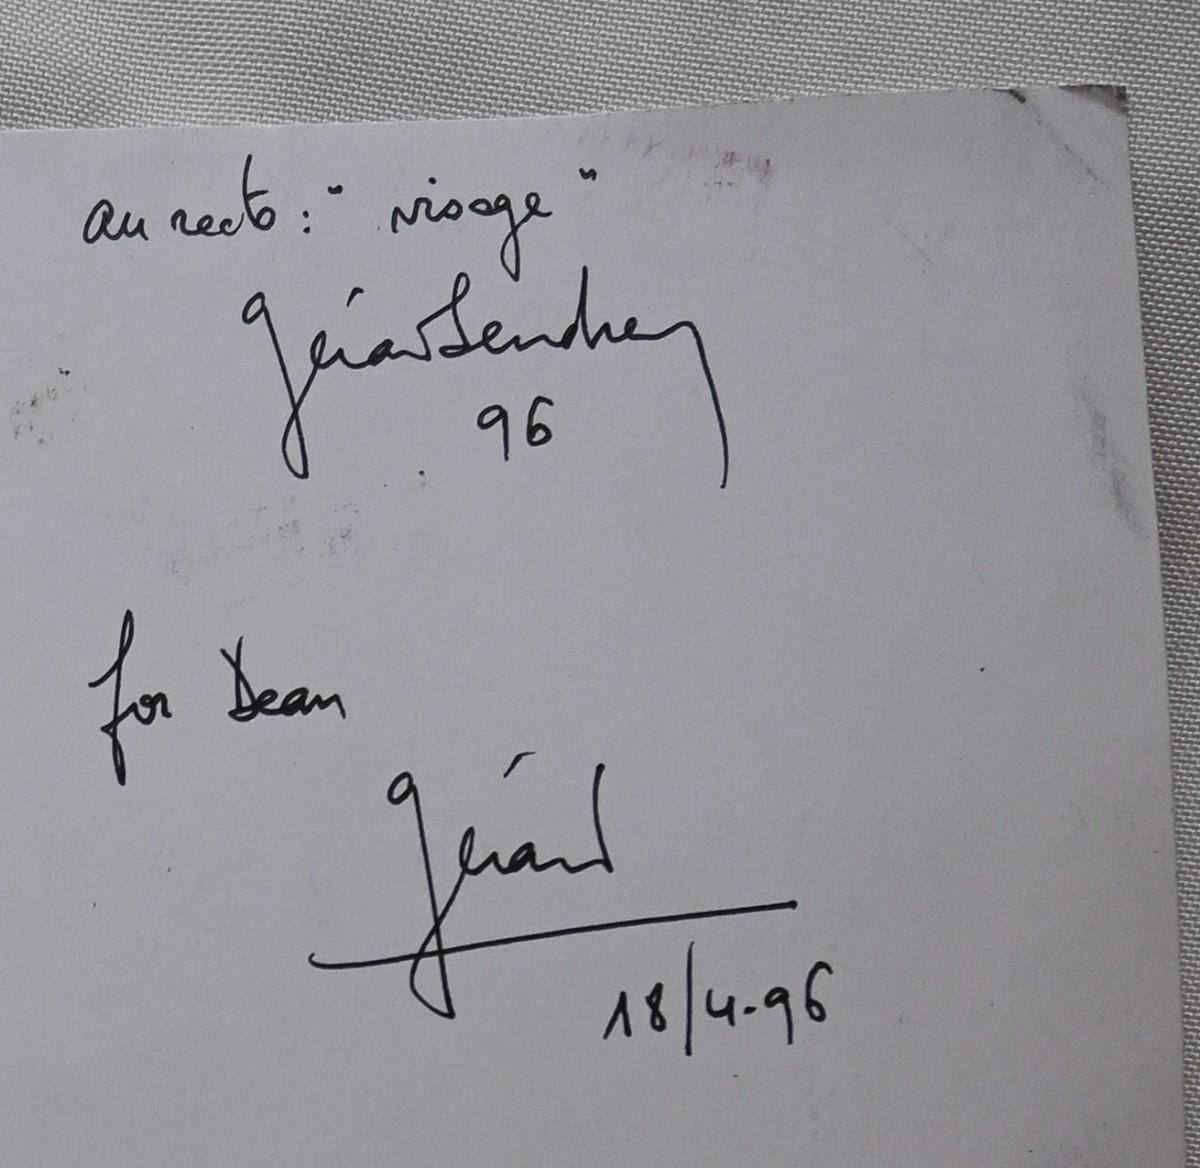 au recto : " visage "
Gérard Sendrey
96
for Dean
Gérard
18/4-96